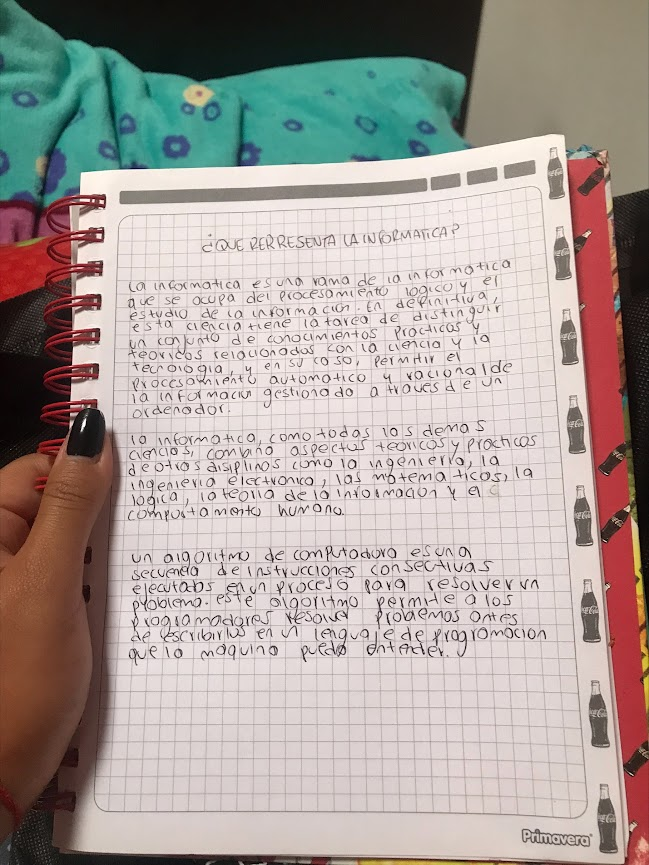 ¿QUE RERRESENTA LA INFORMATICA?
La informatica es una rama de la informatica
que se ocupa del procesamiento logico y el
estudio de la informacion. En definitiva,
esta ciencia tiene la tarea de distinguir
un conjunto de conocimientos practicos y
teoricos relacionados con la ciencia y la
tecnologia, y en su caso, permitir el
procesamiento automatico y racional de
la informacion gestionada a traves de un
ordenador.
la informatica, como todas las demas
ciencias, combina aspectos teoricos y practicos
de otras disiplinas como la ingenieria, la
ingenieria electronica, las matematicas, la
logica, la teoria de la informacion y el
comportamento humano.
un algoritmo de computadora es una
secuencia de instrucciones consectivas
ejecutadas en un proceso para resolver un
problema. este algoritmo permite a los
programadores resolver problemas antes
de escribirlos en un lenguaje de programacion
que la maquina puede entender.
Primavera